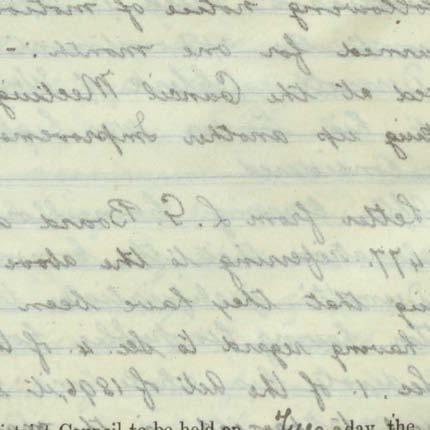 ollowing notice of motion
urned for one month :-
ed at the Council Meeting
ing up another Improveme
Letter from L. G. Board
477. referring to the above
ing that they have been
having regard to Sec. 4. of
Sec. 1. of the Act of 1896,
Council to be held on Tues day, the